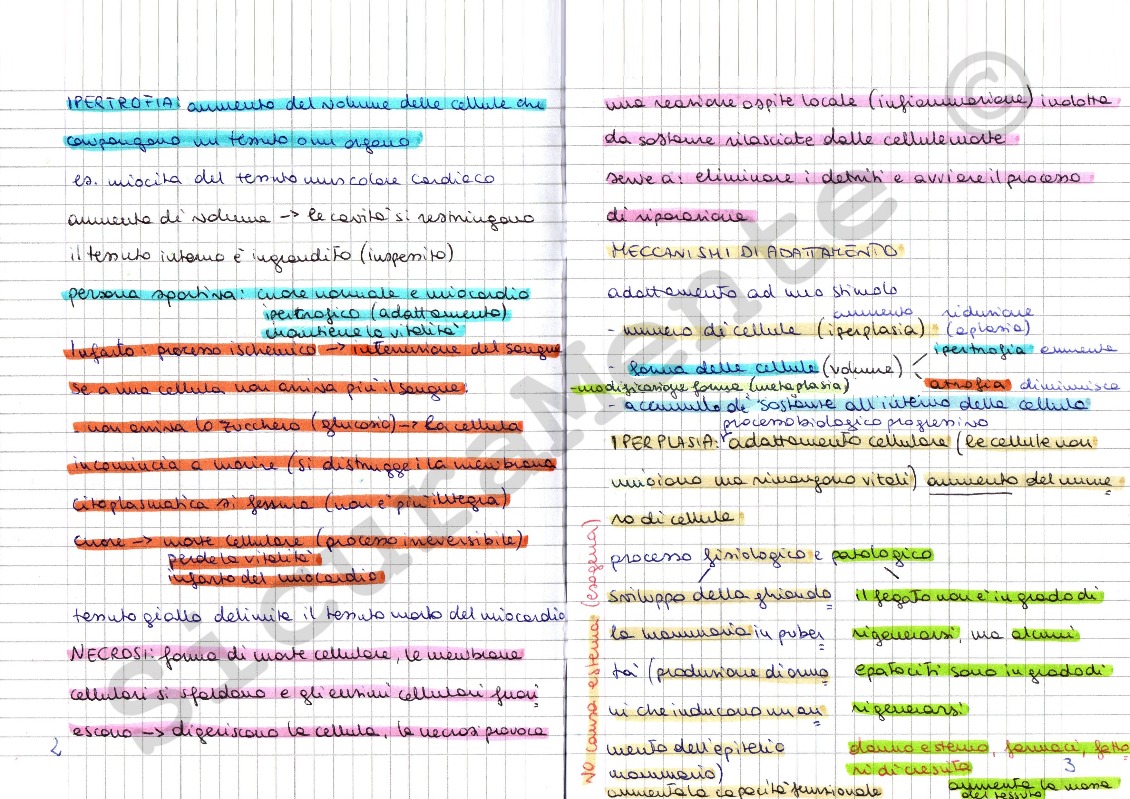 IPERTROFIA: aumento del volume delle cellule che
compongono un tessuto o un organo
es. miocita del tessuto muscolare cardiaco
aumenta di volume -> le cavità si restringono
il tessuto interno è ingrandito (inspessito)
persona sportiva: cuore normale e miocardio
ipertrofico (adattamento)
mantiene la vitalità
Infarto: processo ischemico -> interruzione del sangue
se a una cellula non arriva più il sangue:
. non arriva lo zucchero (glucosio) -> la cellula
incomincia a morire (si distrugge la membrana
citoplasmatica si fessura (non è più integra)
cuore -> morte cellulare (processo irreversibile)
perde la vitalità
infarto del miocardio
tessuto giallo delimita il tessuto morto del miocardio
NECROSI: forma di morte cellulare, le membrane
cellulari si sfaldano e gli enzimi cellulari fuori
escono -> digeriscono la cellula, la necrosi provoca
2
una reazione ospite locale (infiammazione) indotta
da sostanze rilasciate dalle cellule morte
serve a: eliminare i detriti e avviare il processo
di riparazione
MECCANISMI DI ADATTAMENTO
adattamento ad uno stimolo
aumento riduzione
- numero di cellule (iperplasia) (aplasia)
ipertrofia aumenta
- forma delle cellule (volume)
- modificazione forma (metaplasia) atrofia diminuisce
- accumulo di sostanze all'interno della cellula
processo biologico progressivo
IPERPLASIA: adattamento cellulare (le cellule non
muoiono ma rimangono vitali) aumento del nume
ro di cellule
NO causa esterna (esogena)
processo fisiologico e patologico
sviluppo della ghiando
la mammaria in puber
tà (produzione di ormo
ni che inducono un au
mento dell'epitelio
mammario)
aumenta la capacità funzionale
il fegato non è in grado di
rigenerarsi, ma alcuni
epatociti sono in grado di
rigenerarsi
danno esterno, farmaci, fatto
ri di crescita
3
aumenta la massa
del tessuto
SicuraMente ©